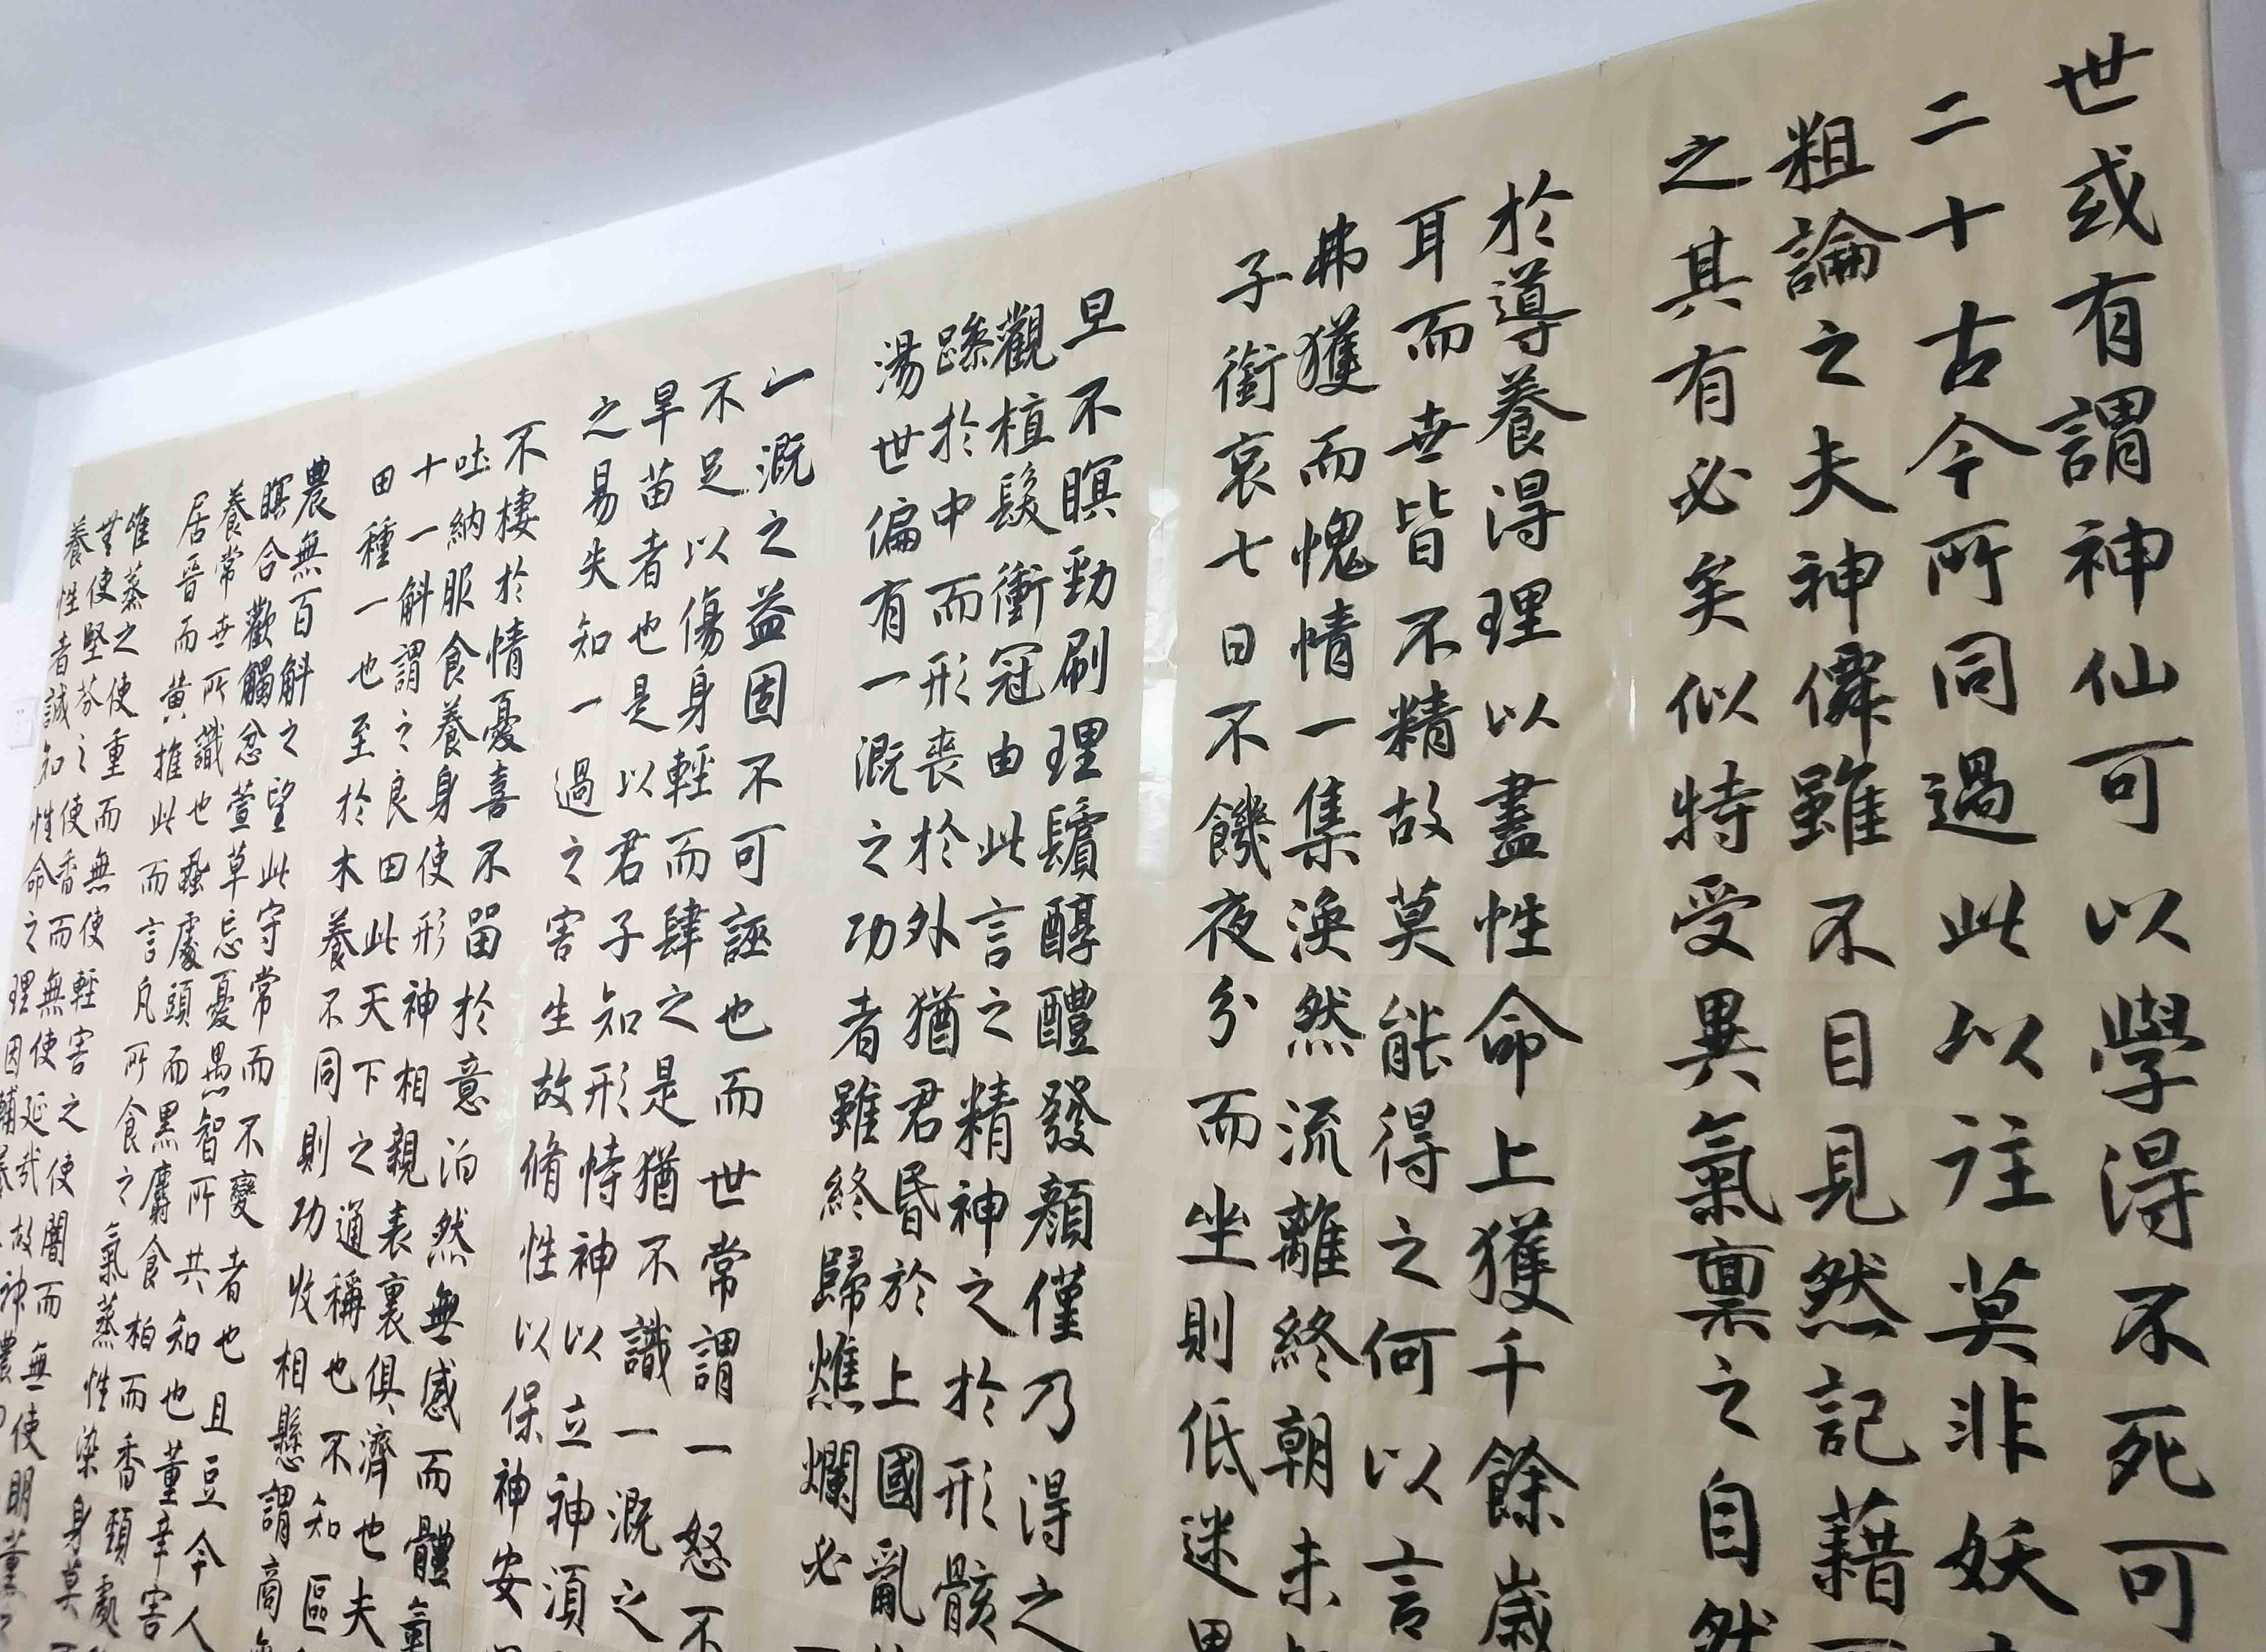 世或有謂神仙可以學得不死可
二十古今所同過此以往莫非妖
粗論之夫神僊雖不目見然記藉
之其有必矣似特受異氣禀之自然
於導養得理以盡性命上獲千餘歲
耳而世皆不精故莫能得之何以言
弗獲而愧情一集渙然流離終朝未
子銜哀七日不饑夜分而坐則低迷思
旦不瞑勁刷理鬢醇醴發顏僅乃得之
觀植髮衝冠由此言之精神之於形骸
躁於中而形喪於外猶君昏於上國亂
湯世偏有一溉之功者雖終歸燋爛必
一溉之益固不可誣也而世常謂一怒不
不足以傷身輕而肆之是猶不識一溉之
旱苗者也是以君子知形恃神以立神須
之易失知一過之害生故脩性以保神安
不棲於情憂喜不留於意泊然無感而體氣
吐納服食養身使形神相親表裏俱濟也夫
十一斛謂之良田此天下之通稱也不知區
田種一也至於木養不同則功收相懸謂商
農無百斛之望此守常而不變者也且豆令人
瞑合歡觸忿萱草忘憂愚智所共知也薰辛害
養常世所識也蝨處頭而黑麝食柏而香頸處
居晉而黃推此而言凡所食之氣蒸性染身莫
唯蒸之使重而無使輕害之使闇而無使明薰
無使堅芬之使香而無使延哉故神農
養性者誠知性命之理因輔養